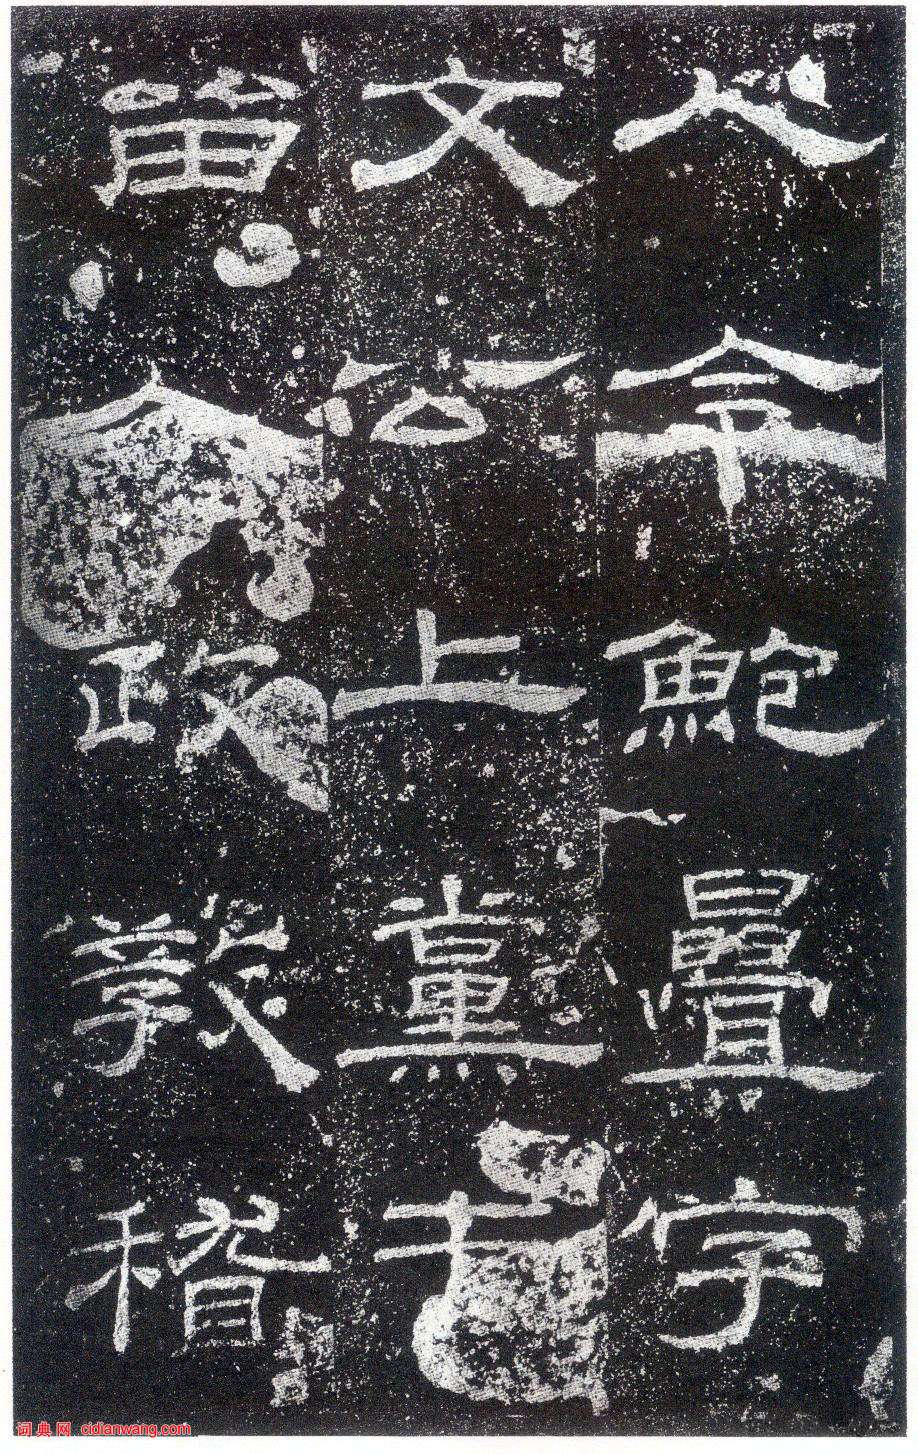 人令鮑疊字
文公上黨屯
留人政教稽
词典网 cidianwang.com